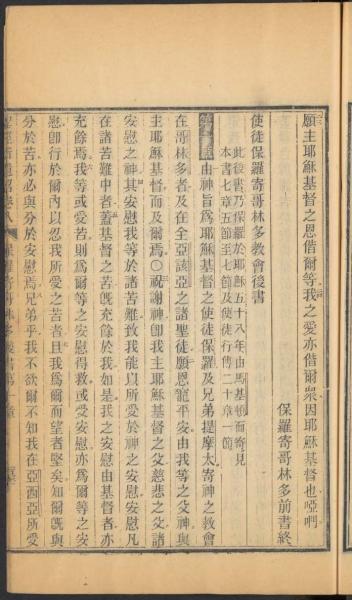 願主耶穌基督之恩偕爾等我之愛亦偕爾衆因耶穌基督也啞們
保羅寄哥林多前書終
使徒保羅寄哥林多教會後書
此後書乃保羅於耶穌五十八年由馬基頓而寄見
本書七章五節至七節及使徒行傳二十章一節
由神旨爲耶穌基督之使徒保羅及兄弟提摩太寄神之教會
在哥林多者及在全亞該亞之諸聖徒願恩寵平安由我等之父神與
主耶穌基督而及爾焉○祝謝神卽我主耶穌基督之父慈悲之父諸
安慰之神其安慰我等於諸苦難致我能以所愛於神之安慰安慰凡
在諸苦難中者蓋基督之苦旣充餘於我如是我之安慰由基督者亦
充餘焉我等或愛苦則爲爾等之安慰得救或受安慰亦爲爾等之安
慰卽行於爾內以忍我所愛之苦者且我爲爾而望者堅矣知爾旣與
分於苦亦必與分於安慰焉兄弟乎我不欲爾不知我在亞西亞所愛